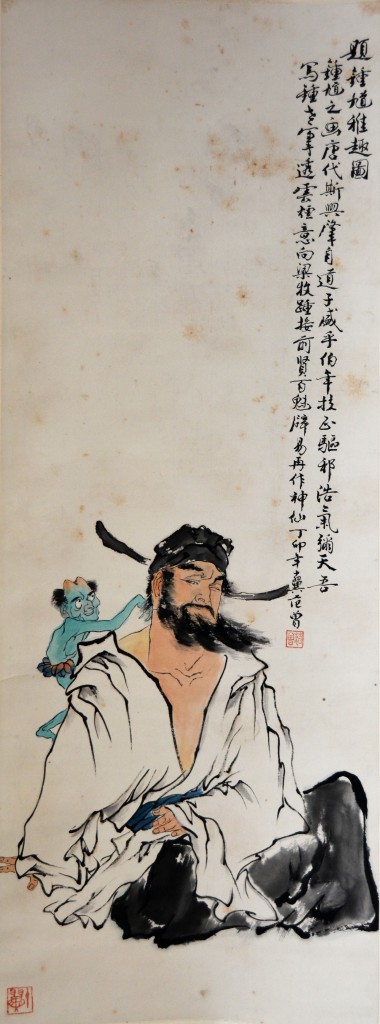 題鍾馗雅趣圖
鍾馗之画唐代斯興肇自道子盛乎伯年扶正驅邪浩氣彌天吾
寫鍾老軍透雲烟意向梁牧踵接前賢百魅辟易再作神仙丁卯年冀范曾